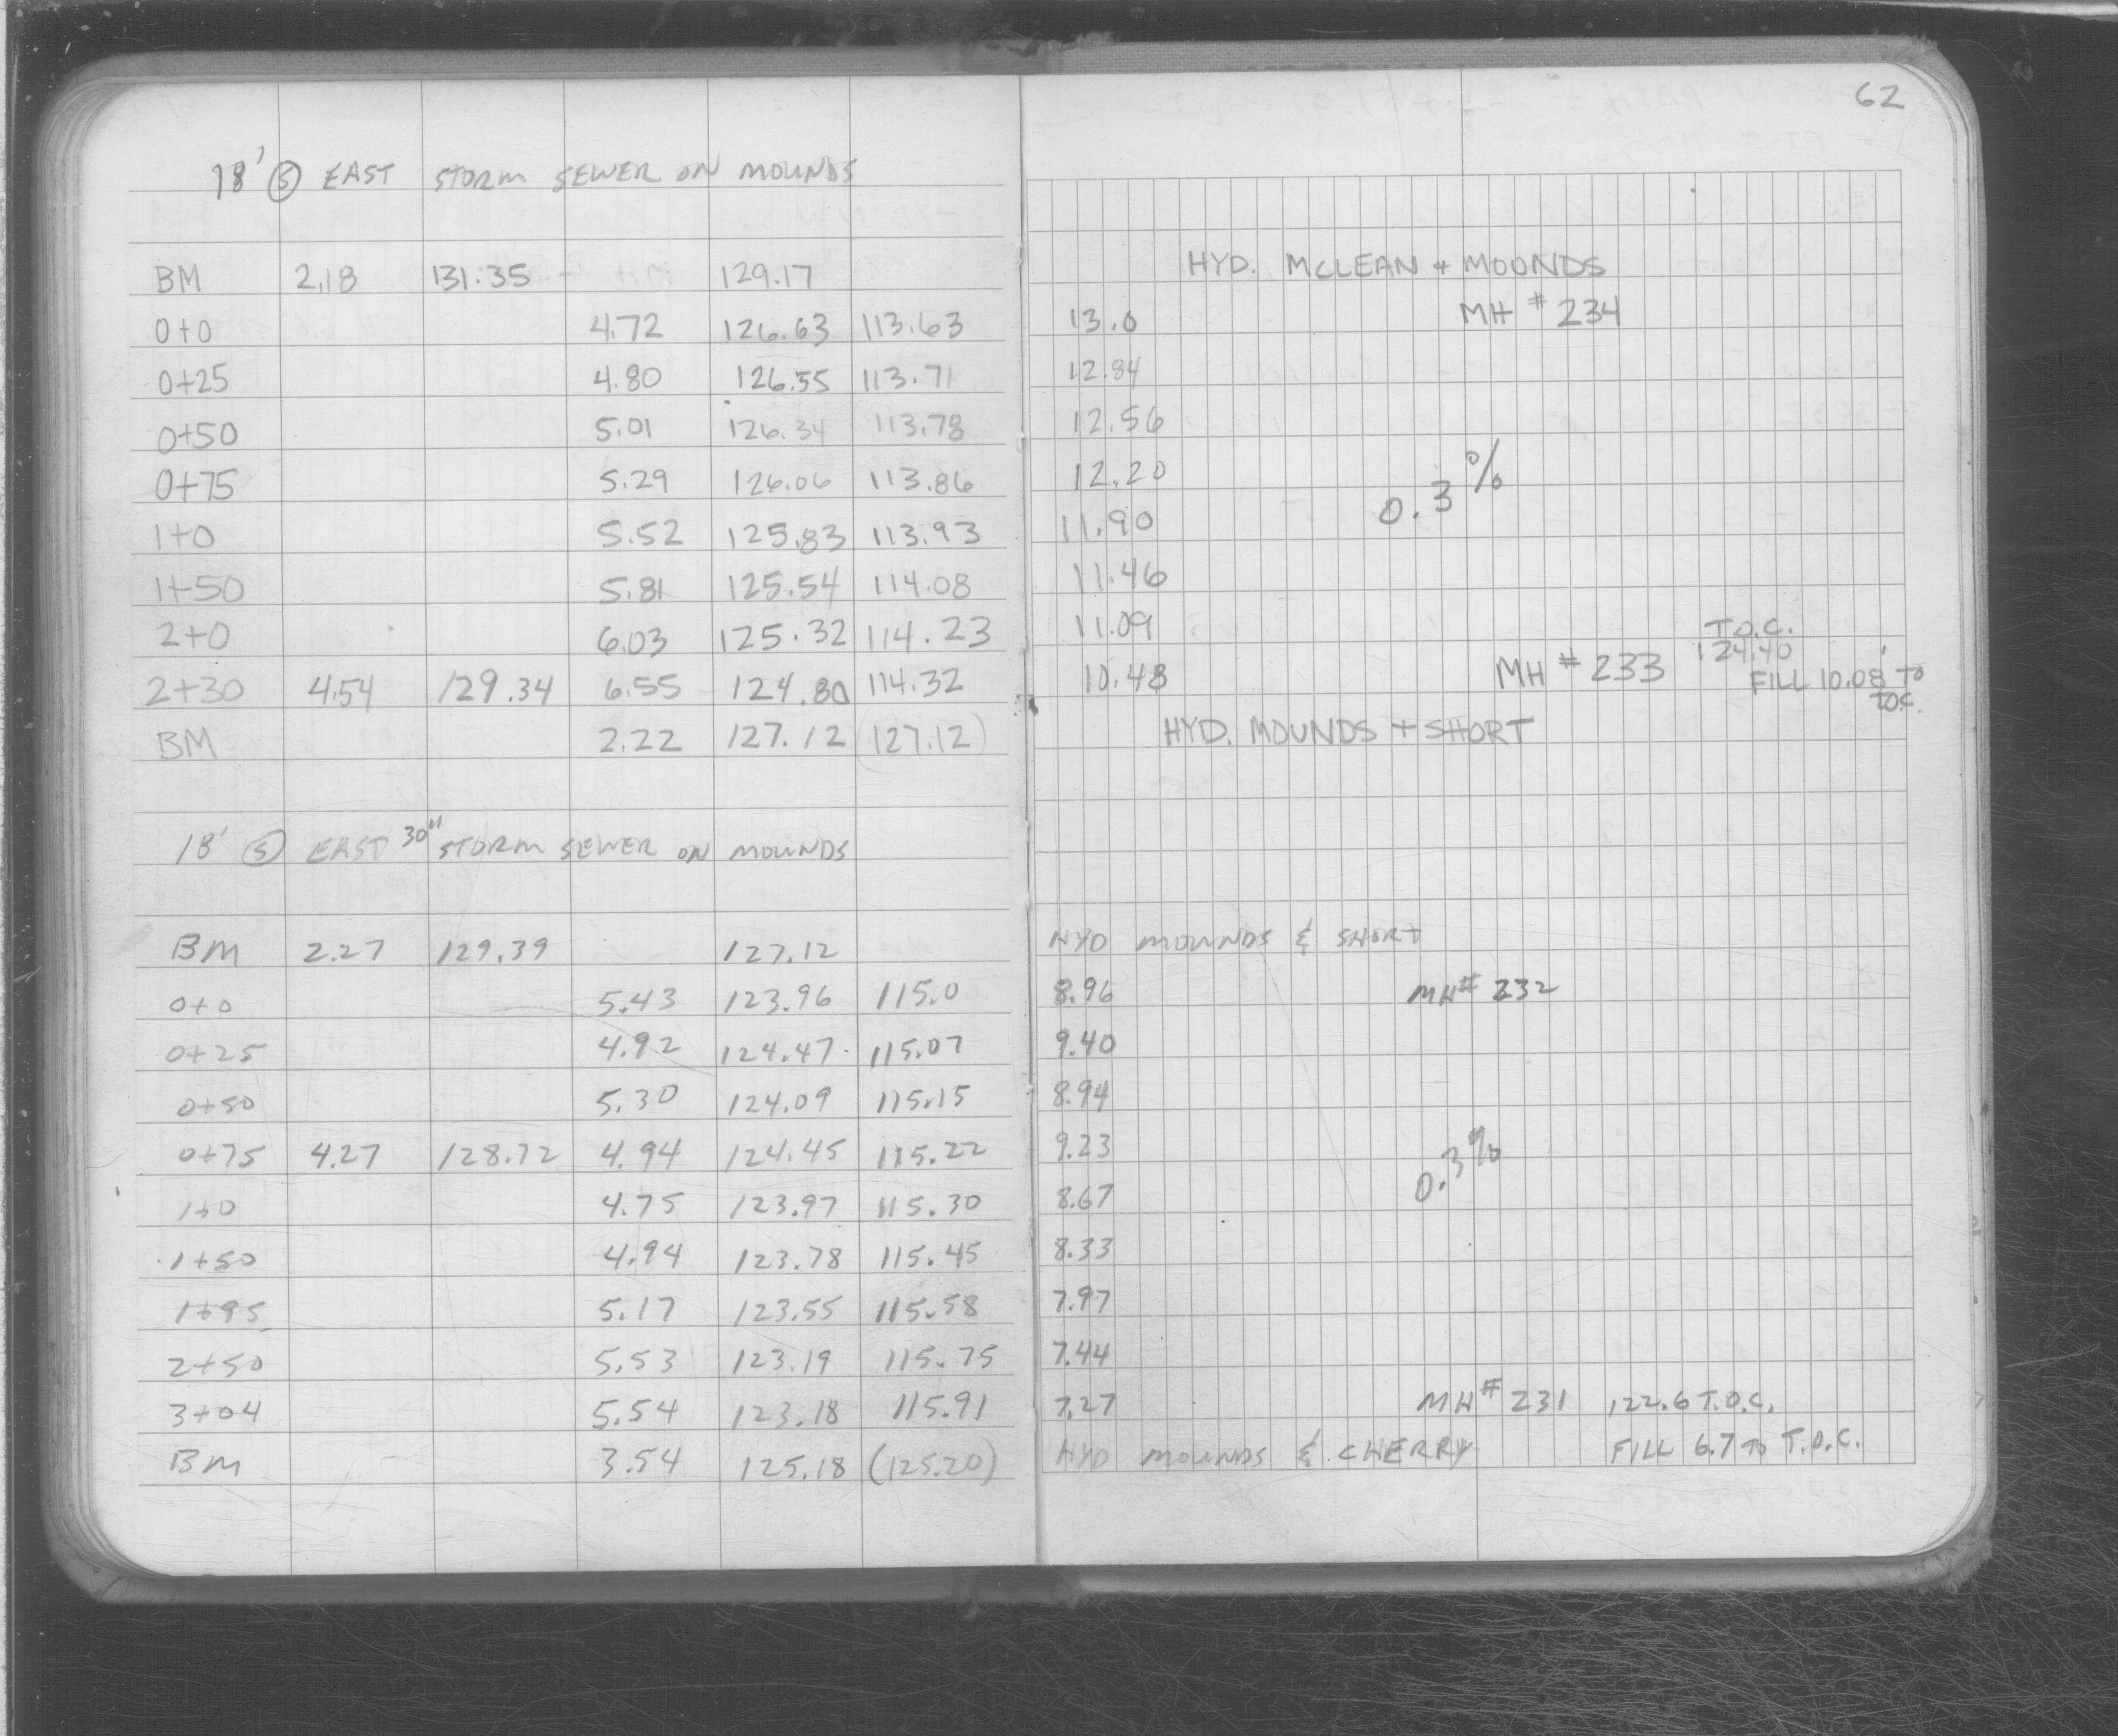 62
18' Ⓢ EAST STORM SEWER ON MOUNDS
BM 2.18 131.35 129.17 HYD. MCLEAN + MOUNDS
0+0 4.72 126.63 113.63 13.0 MH # 234
0+25 4.80 126.55 113.71 12.84
0+50 5.01 126.34 113.78 12.56
0+75 5.29 126.06 113.86 12.20
0.3%
1+0 5.52 125.83 113.93 11.90
1+50 5.81 125.54 114.08 11.46
2+0 6.03 125.32 114.23 11.09 T.O.C.
124.40
2+30 4.54 129.34 6.55 124.80 114.32 10.48 MH # 233 FILL 10.08' TO
T.O.C.
BM 2.22 127.12 (127.12) HYD. MOUNDS + SHORT
18' Ⓢ EAST 30" STORM SEWER ON MOUNDS
BM 2.27 129.39 127.12 HYD MOUNDS & SHORT
0+0 5.43 123.96 115.0 8.96 MH# 232
0+25 4.92 124.47 115.07 9.40
0+50 5.30 124.09 115.15 8.94
0+75 4.27 128.72 4.94 124.45 115.22 9.23
0.3%
1+0 4.75 123.97 115.30 8.67
1+50 4.94 123.78 115.45 8.33
1+95 5.17 123.55 115.58 7.97
2+50 5.53 123.19 115.75 7.44
3+04 5.54 123.18 115.91 7.27 MH# 231 122.6 T.O.C.
BM 3.54 125.18 (125.20) HYD MOUNDS & CHERRY FILL 6.7 TO T.O.C.